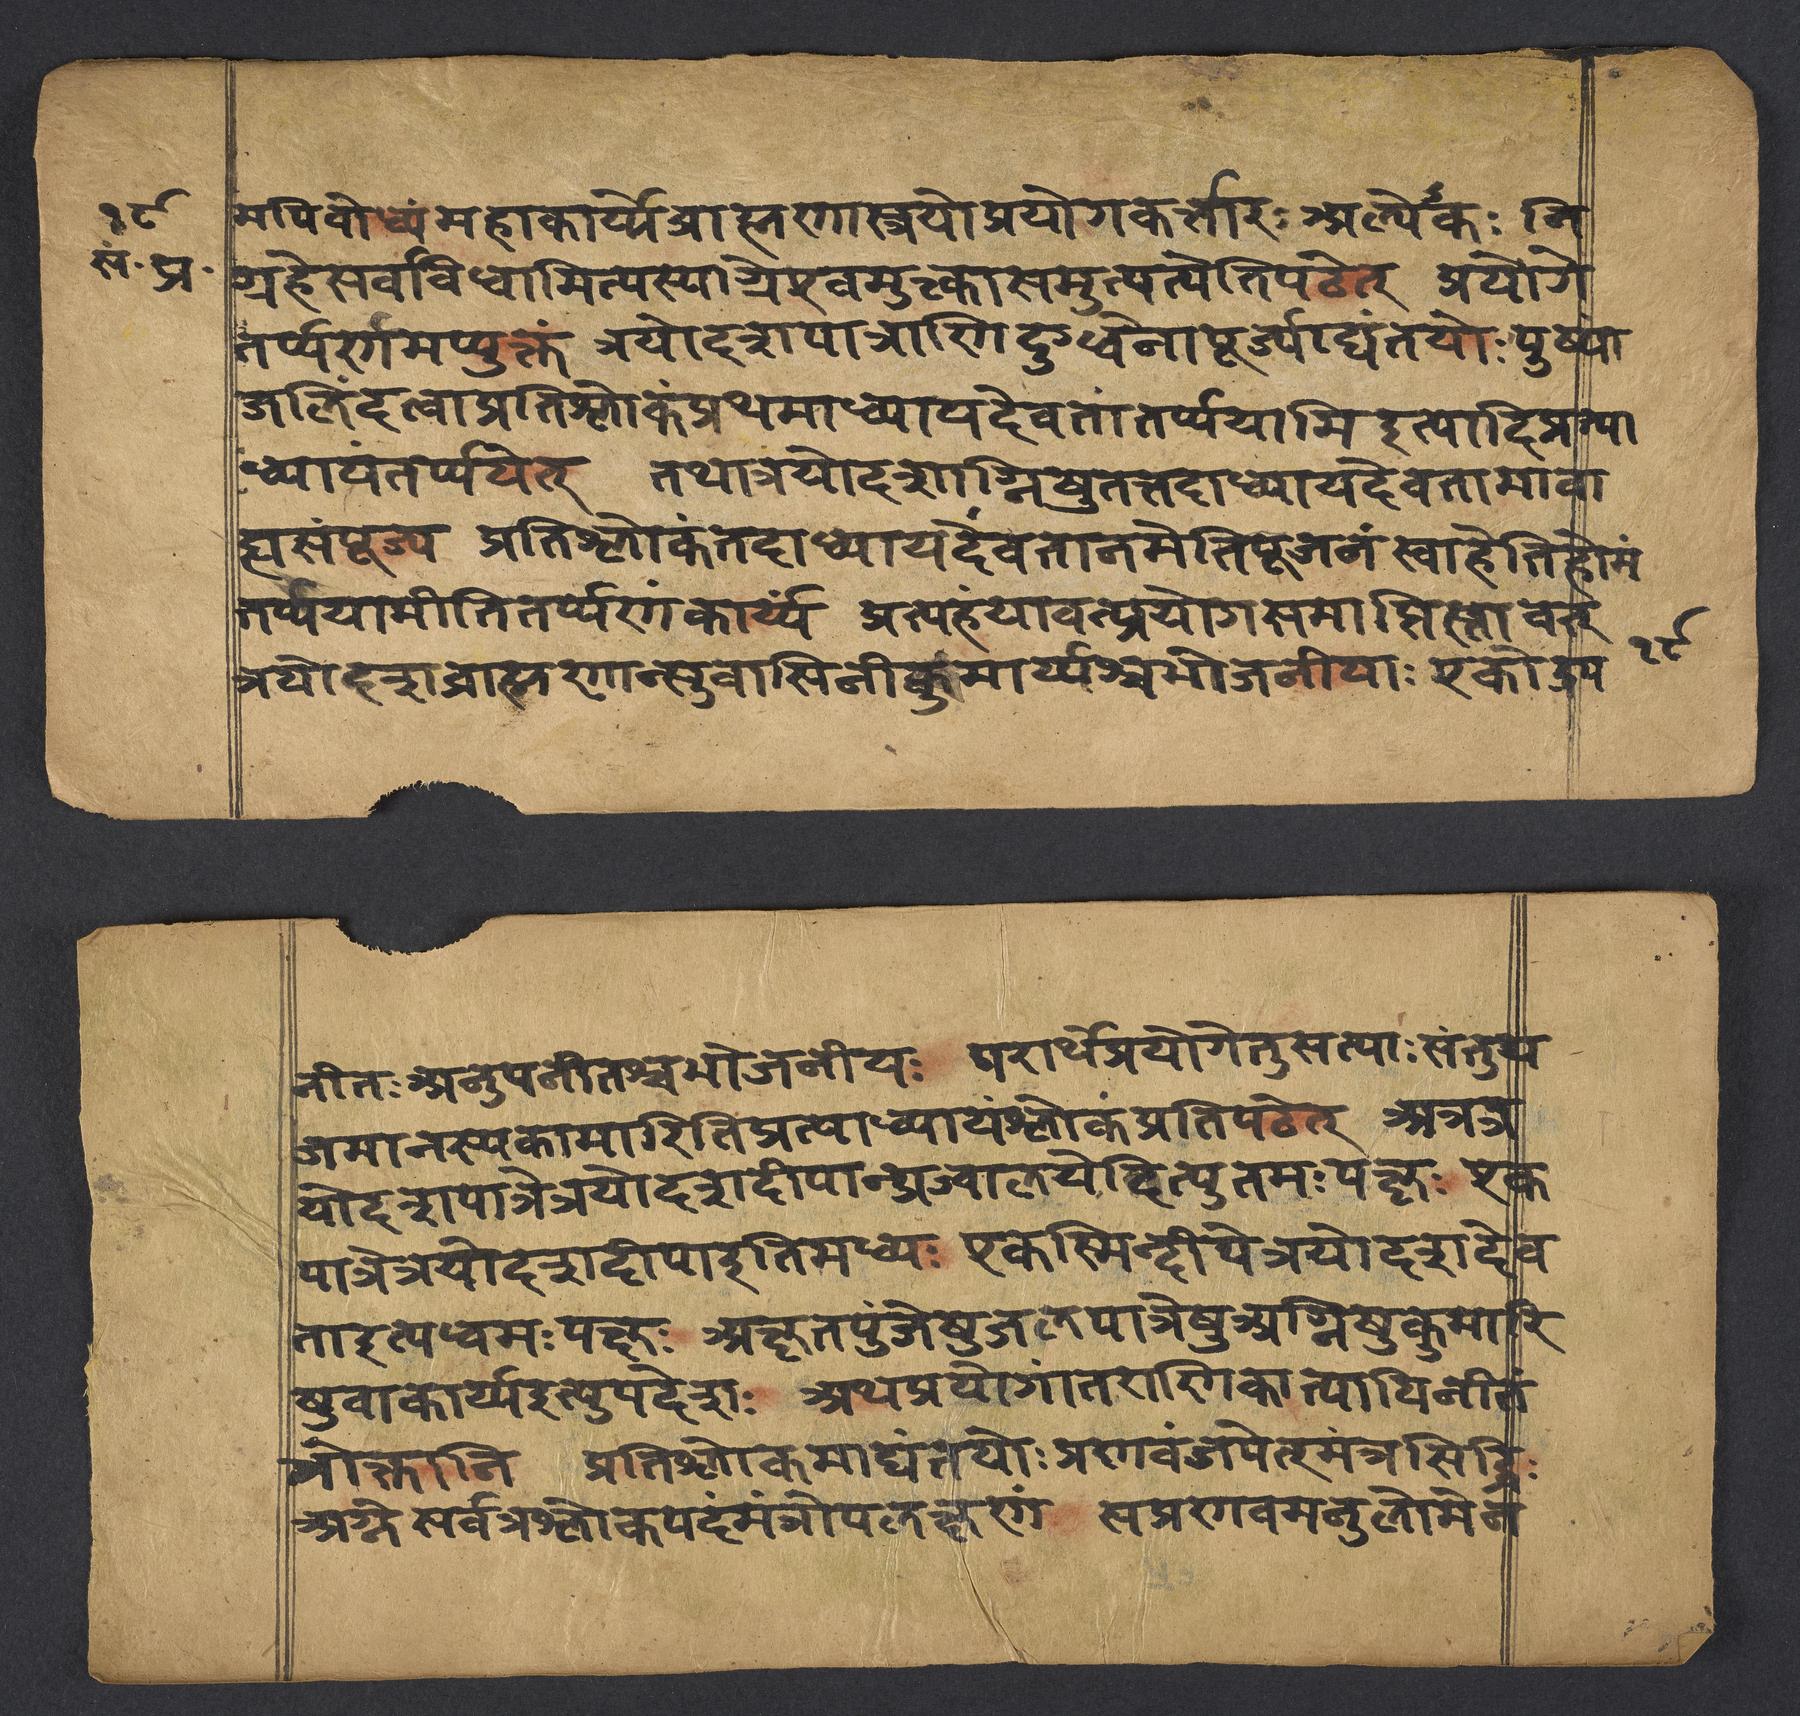 १८
सं. प्र.
मपिबोध्यं महाकार्य्ये ब्राह्मणास्त्रयो प्रयोगकर्त्तारः अल्पे कः नि
ग्रहे सर्वविध्वामित्यस्याग्रे एवमुक्त्वा समुत्पत्येति पठेत् प्रयोगे
तर्प्पणमप्युक्तं त्रयोदशपात्राणि दुग्धेनापूर्ज्याद्यंतयोः पुष्पां
जलिं दत्वा प्रतिश्लोकं प्रथमाध्यायदेवतां तर्प्पयामि इत्यादि प्रत्या
ध्यायं तर्प्पयेत् तथा त्रयोदशाग्निषु तत्तदाध्यायदेवतामावा
ह्य संपूज्य प्रतिश्लोकं तदाध्यायदेवतानमेति पूजनं स्वाहेति होमं
तर्प्पयामीति तर्प्पणं कार्य्यं प्रत्यहं यावत्प्रयोगसमाप्तिस्तावत्
त्रयोदशब्राह्मणान्सुवासिनीकुमार्य्यश्चभोजनीयाः एकोउप
१८
नीतः अनुपनीतश्चभोजनीयः परार्थे प्रयोगे तु सत्याः संतु य
जमानस्य कामारिति प्रत्याध्यायं श्लोकं प्रति पठेत् अत्र त्र
योदशपात्रे त्रयोदशदीपान्प्रज्वालयेदित्युतमः पक्षः एक
पात्रे त्रयोदशदीपा इति मध्यः एकस्मिन्दीपे त्रयोदशदेव
ता इत्यध्वमः पक्षः अक्षतपुंजेषु जलपात्रेषु अग्निषु कुमारि
षु वा कार्य्य इत्युपदेशः अथ प्रयोगांतराणि कात्यायिनीतं
त्रोक्तानि प्रतिश्लोकमाद्यंतयोः प्रणवं जपेत् मंत्रसिद्धिः
अग्रे सर्वत्र श्लोकपदं मंत्रोपलक्षणं सप्रणवमनुलोमेन